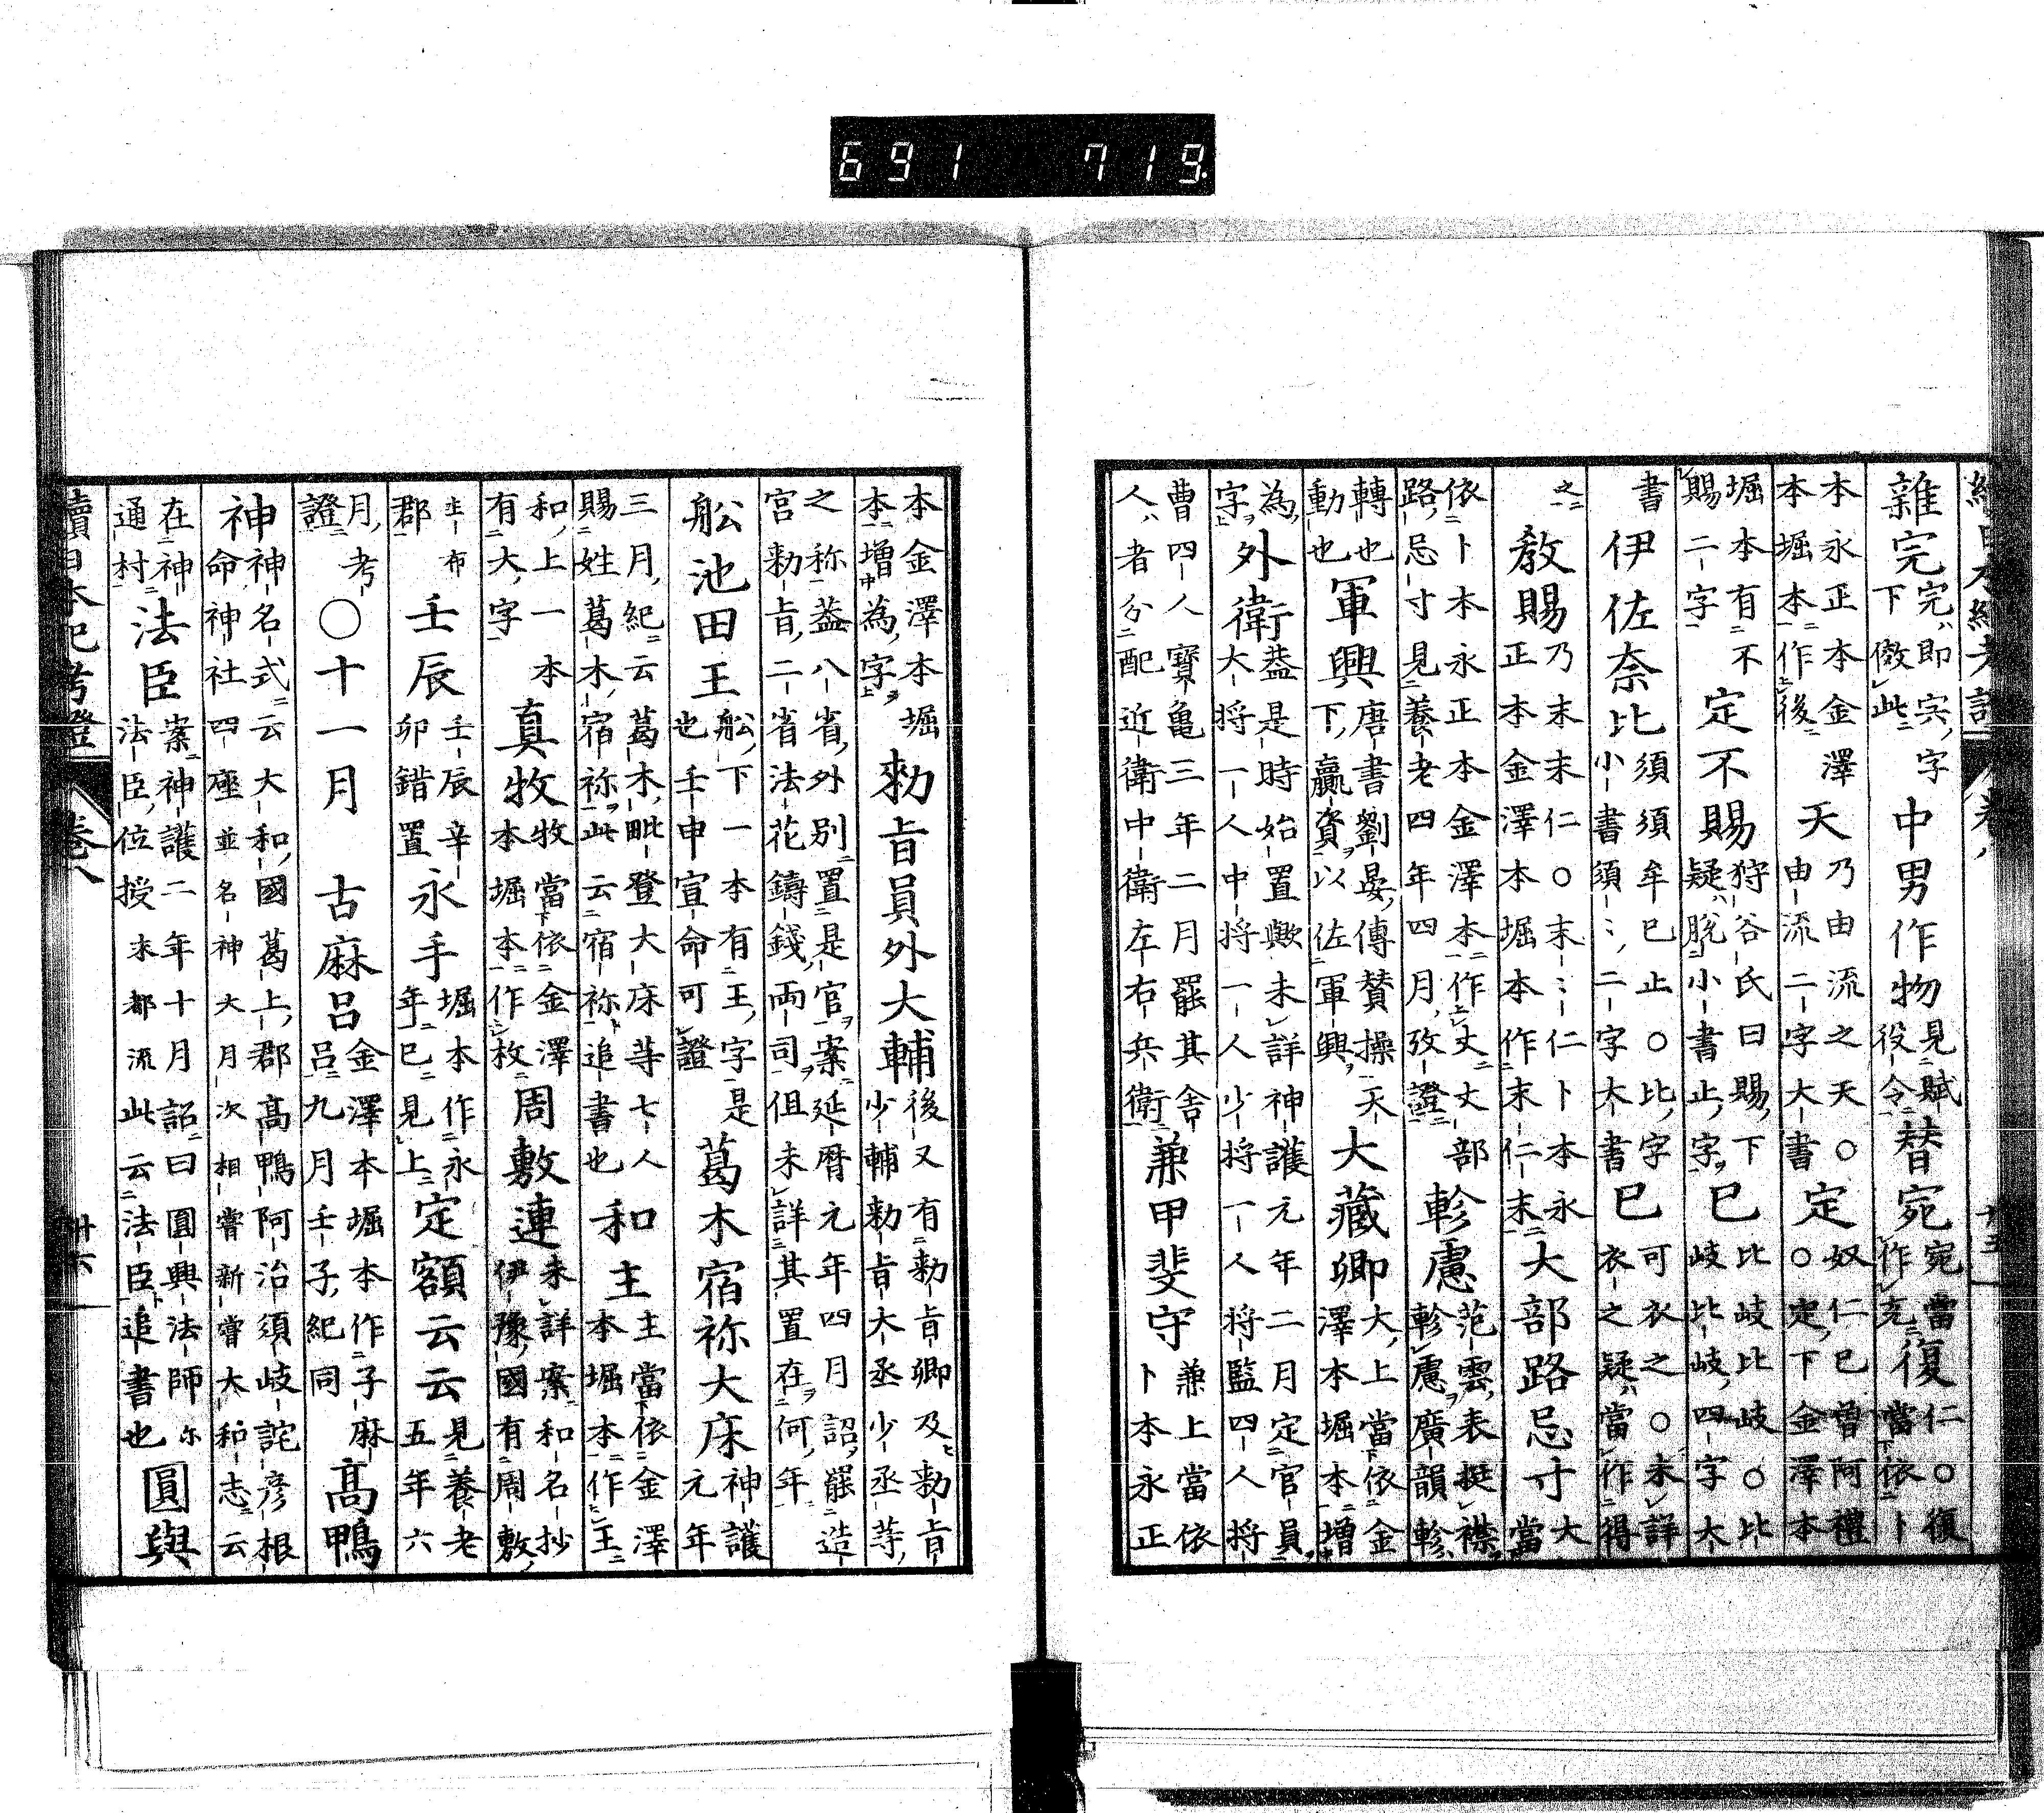 691 719
續日本紀考證 卷八
雜完 完即宍字下傚此 中男作物 見賦役令 替宛 宛當作充 復 仁○復當依卜
本永正本金澤本堀本作後 天 乃由流之天○由流二字大書 定 奴仁巳曾阿禮○定下金澤本
堀本有不賜二字 定不賜 狩谷氏曰賜下疑脫小書止字 巳 比岐比岐○比岐比岐四字大
書 伊佐奈比 須須牟巳止○比字小書須〻二字大書 巳 可衣之○未詳衣之疑當作得
之 教賜 乃末末仁○末〻仁卜本永正本金澤本堀本作末仁末 大部路忌寸 大當
依卜本永正本金澤本作丈丈部路忌寸見養老四年四月攷證 軫慮 范雲表挺襟軫慮廣韻軫
轉也動也 軍興 唐書劉晏傳贊操天下贏資以佐軍興 大藏卿 大上當依金澤本堀本增
為字 外衛 葢是時始置歟未詳神護元年二月定官員大將一人中將一人少將一人將監四人將
曹四人寶龜三年二月罷其舍人者分配近衛中衛左右兵衛 兼甲斐守 兼上當依卜本永正
本金澤本堀本增為字 勅旨員外大輔 後又有勅旨卿及勅旨少輔勅旨大丞少丞等
之称葢八省外別置是官案延暦元年四月詔罷造宮勅旨二省法花鑄錢兩司但未詳其置在何年
舩池田王 舩下一本有王字是也壬申宣命可證 葛木宿祢大床 神護元年
三月紀云葛木毗登大床等七人賜姓葛木宿祢此云宿祢追書也 和主 主當依金澤本堀本作王
和上一本有大字 真牧 牧當依金澤本堀本作枚 周敷連 未詳案和名抄伊豫國有周敷
郡 壬辰 壬辰辛卯錯置 永手 堀本作永年巳見上 定額云云 見養老五年六
月考證 ○十一月 古麻呂 金澤本堀本作子麻呂九月壬子紀同 高鴨
神 神名式云大和國葛上郡高鴨阿治須岐詫彦根命神社四座並名神大月次相嘗新嘗大和志云
在神通村 法臣 案神護二年十月詔曰圓興法師尓法臣位授末都流此云法臣追書也 圓與
續日本紀考證 卷八 廿六